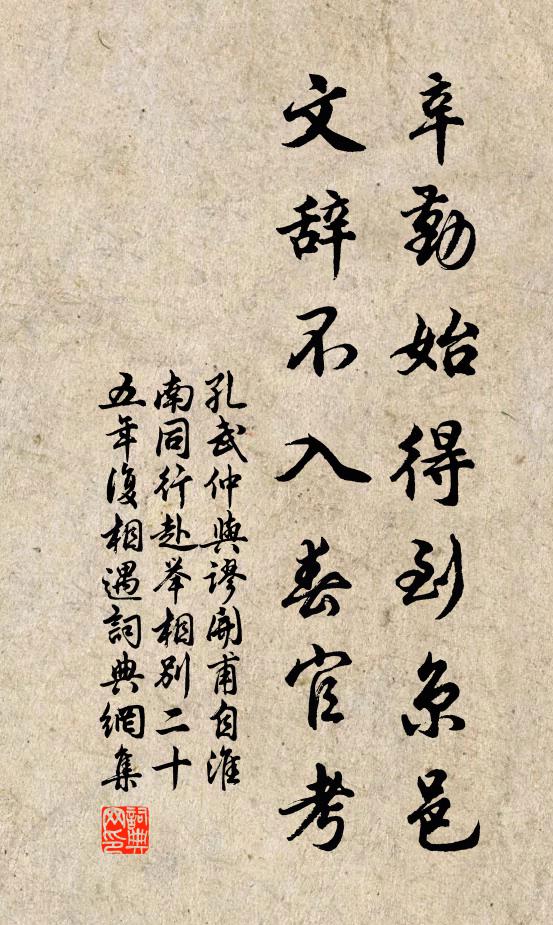 辛勤始得到京邑
文辞不入春官考
孔武仲與謬闻甫自淮
南同行赴举相别二十
五年復相遇詞典網集
詞典网印